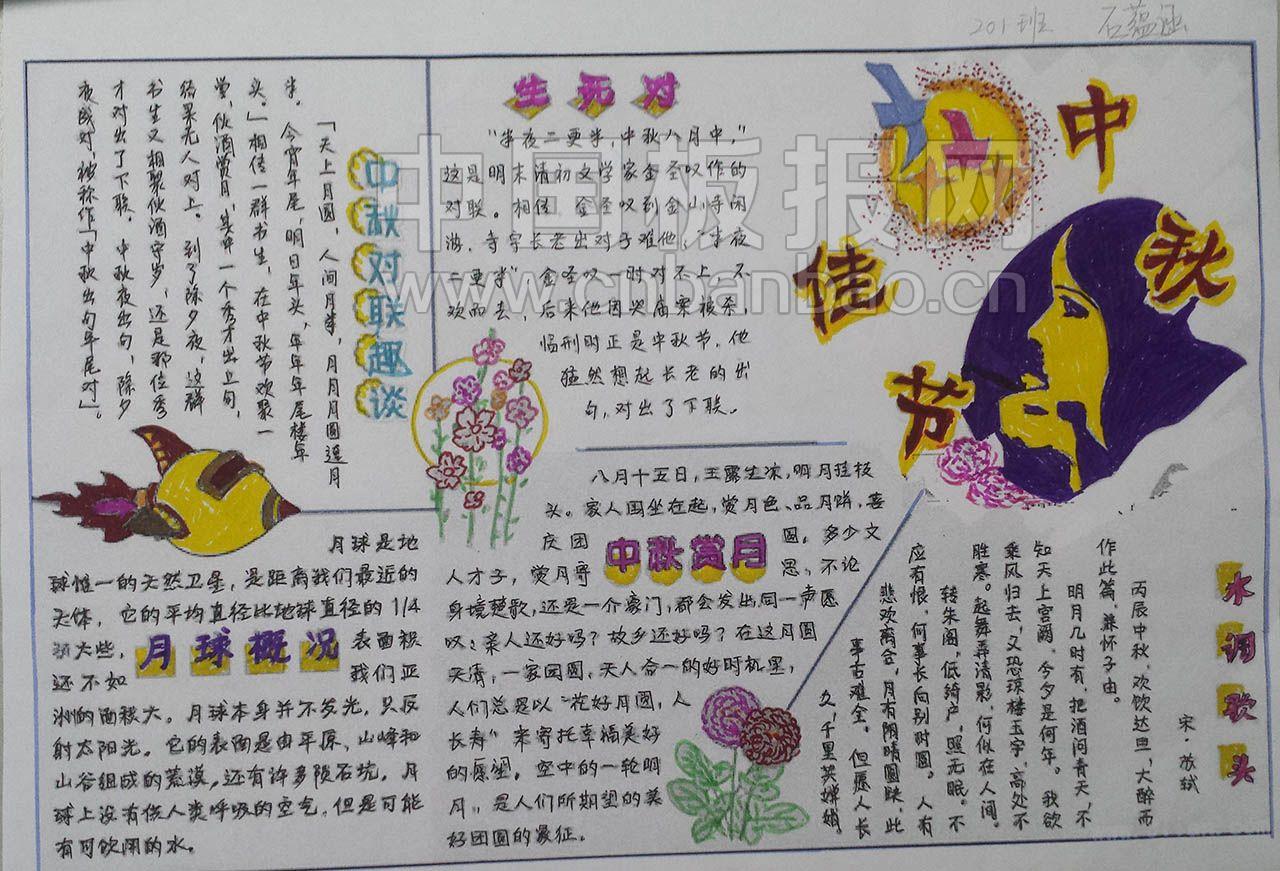 201班 石蕴涵
中秋佳节
中秋对联趣谈
「天上月圆，人间月半，月月月圆逢月
半。今宵年尾，明日年头，年年年尾接年
头。」相传一群书生，在中秋节欢聚一
堂，饮酒赏月，其中一个秀才出上句，
结果无人对上。到了除夕夜，这群
书生又相聚饮酒守岁，还是那位秀
才对出了下联。中秋夜出句，除夕
夜成对，被称作「中秋出句年尾对」。
生死对
"半夜二更半，中秋八月中，"
这是明末清初文学家金圣叹作的
对联。相传 金圣叹到金山寺闲
游，寺宇长老出对子难他："半夜
二更半" 金圣叹一时对不上，不
欢而去，后来他因哭庙案被杀，
临刑时正是中秋节，他
猛然想起长老的出
句，对出了下联。
月球概况
月球是地
球惟一的天然卫星，是距离我们最近的
天体，它的平均直径比地球直径的1/4
大些，表面积
还不如我们亚
洲的面积大。月球本身并不发光，只反
射太阳光。它的表面是由平原、山峰和
山谷组成的荒漠，还有许多陨石坑。月
球上没有供人类呼吸的空气，但是可能
有可饮用的水。
中秋赏月
八月十五日，玉露生凉，明月挂枝
头。家人围坐在起，赏月色、品月饼，喜
庆团圆。多少文
人才子，赏月寄思，不论
身境楚歌，还是一介豪门，都会发出同一声愿
叹：亲人还好吗？故乡还好吗？在这月圆
天清，一家团圆，天人合一的好时机里，
人们总是以"花好月圆，人
长寿"来寄托幸福美好
的愿望。空中的一轮明
月，是人们所期望的美
好团圆的象征。
水调歌头
宋·苏轼
丙辰中秋，欢饮达旦，大醉而
作此篇，兼怀子由。
明月几时有，把酒问青天，不
知天上宫阙，今夕是何年。我欲
乘风归去，又恐琼楼玉宇，高处不
胜寒。起舞弄清影，何似在人间。
转朱阁，低绮户，照无眠。不
应有恨，何事长向别时圆。人有
悲欢离合，月有阴晴圆缺，此
事古难全。但愿人长
久，千里共婵娟。
中国板报网
www.cnbanbao.cn